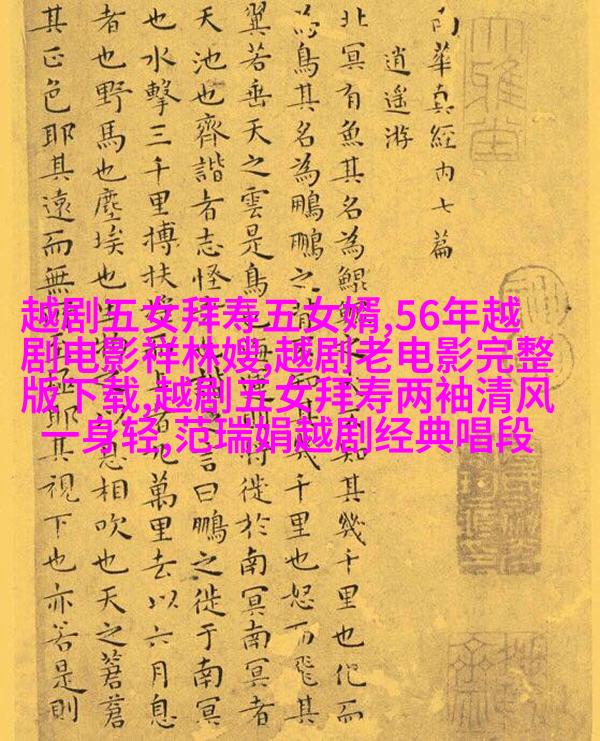 南華真經內七篇
逍遙游
北冥有魚其名為鯤 知其幾千里也化而
為鳥其名為鵬鵬之 其幾千里也怒而飛其
翼若垂天之雲是鳥 將徙於南冥南冥者
天池也齊諧者志怪 言曰鵬之徙于南冥
也水擊三千里搏扶 萬里去以六月息
者也野馬也塵埃也 息相吹也天之蒼蒼
其正色耶其遠而無 極耶其視下也亦若是則
越剧五女拜寿五女婿,56年越
剧电影祥林嫂,越剧老电影完整
版下载,越剧五女拜寿两袖清风
一身轻,范瑞娟越剧经典唱段